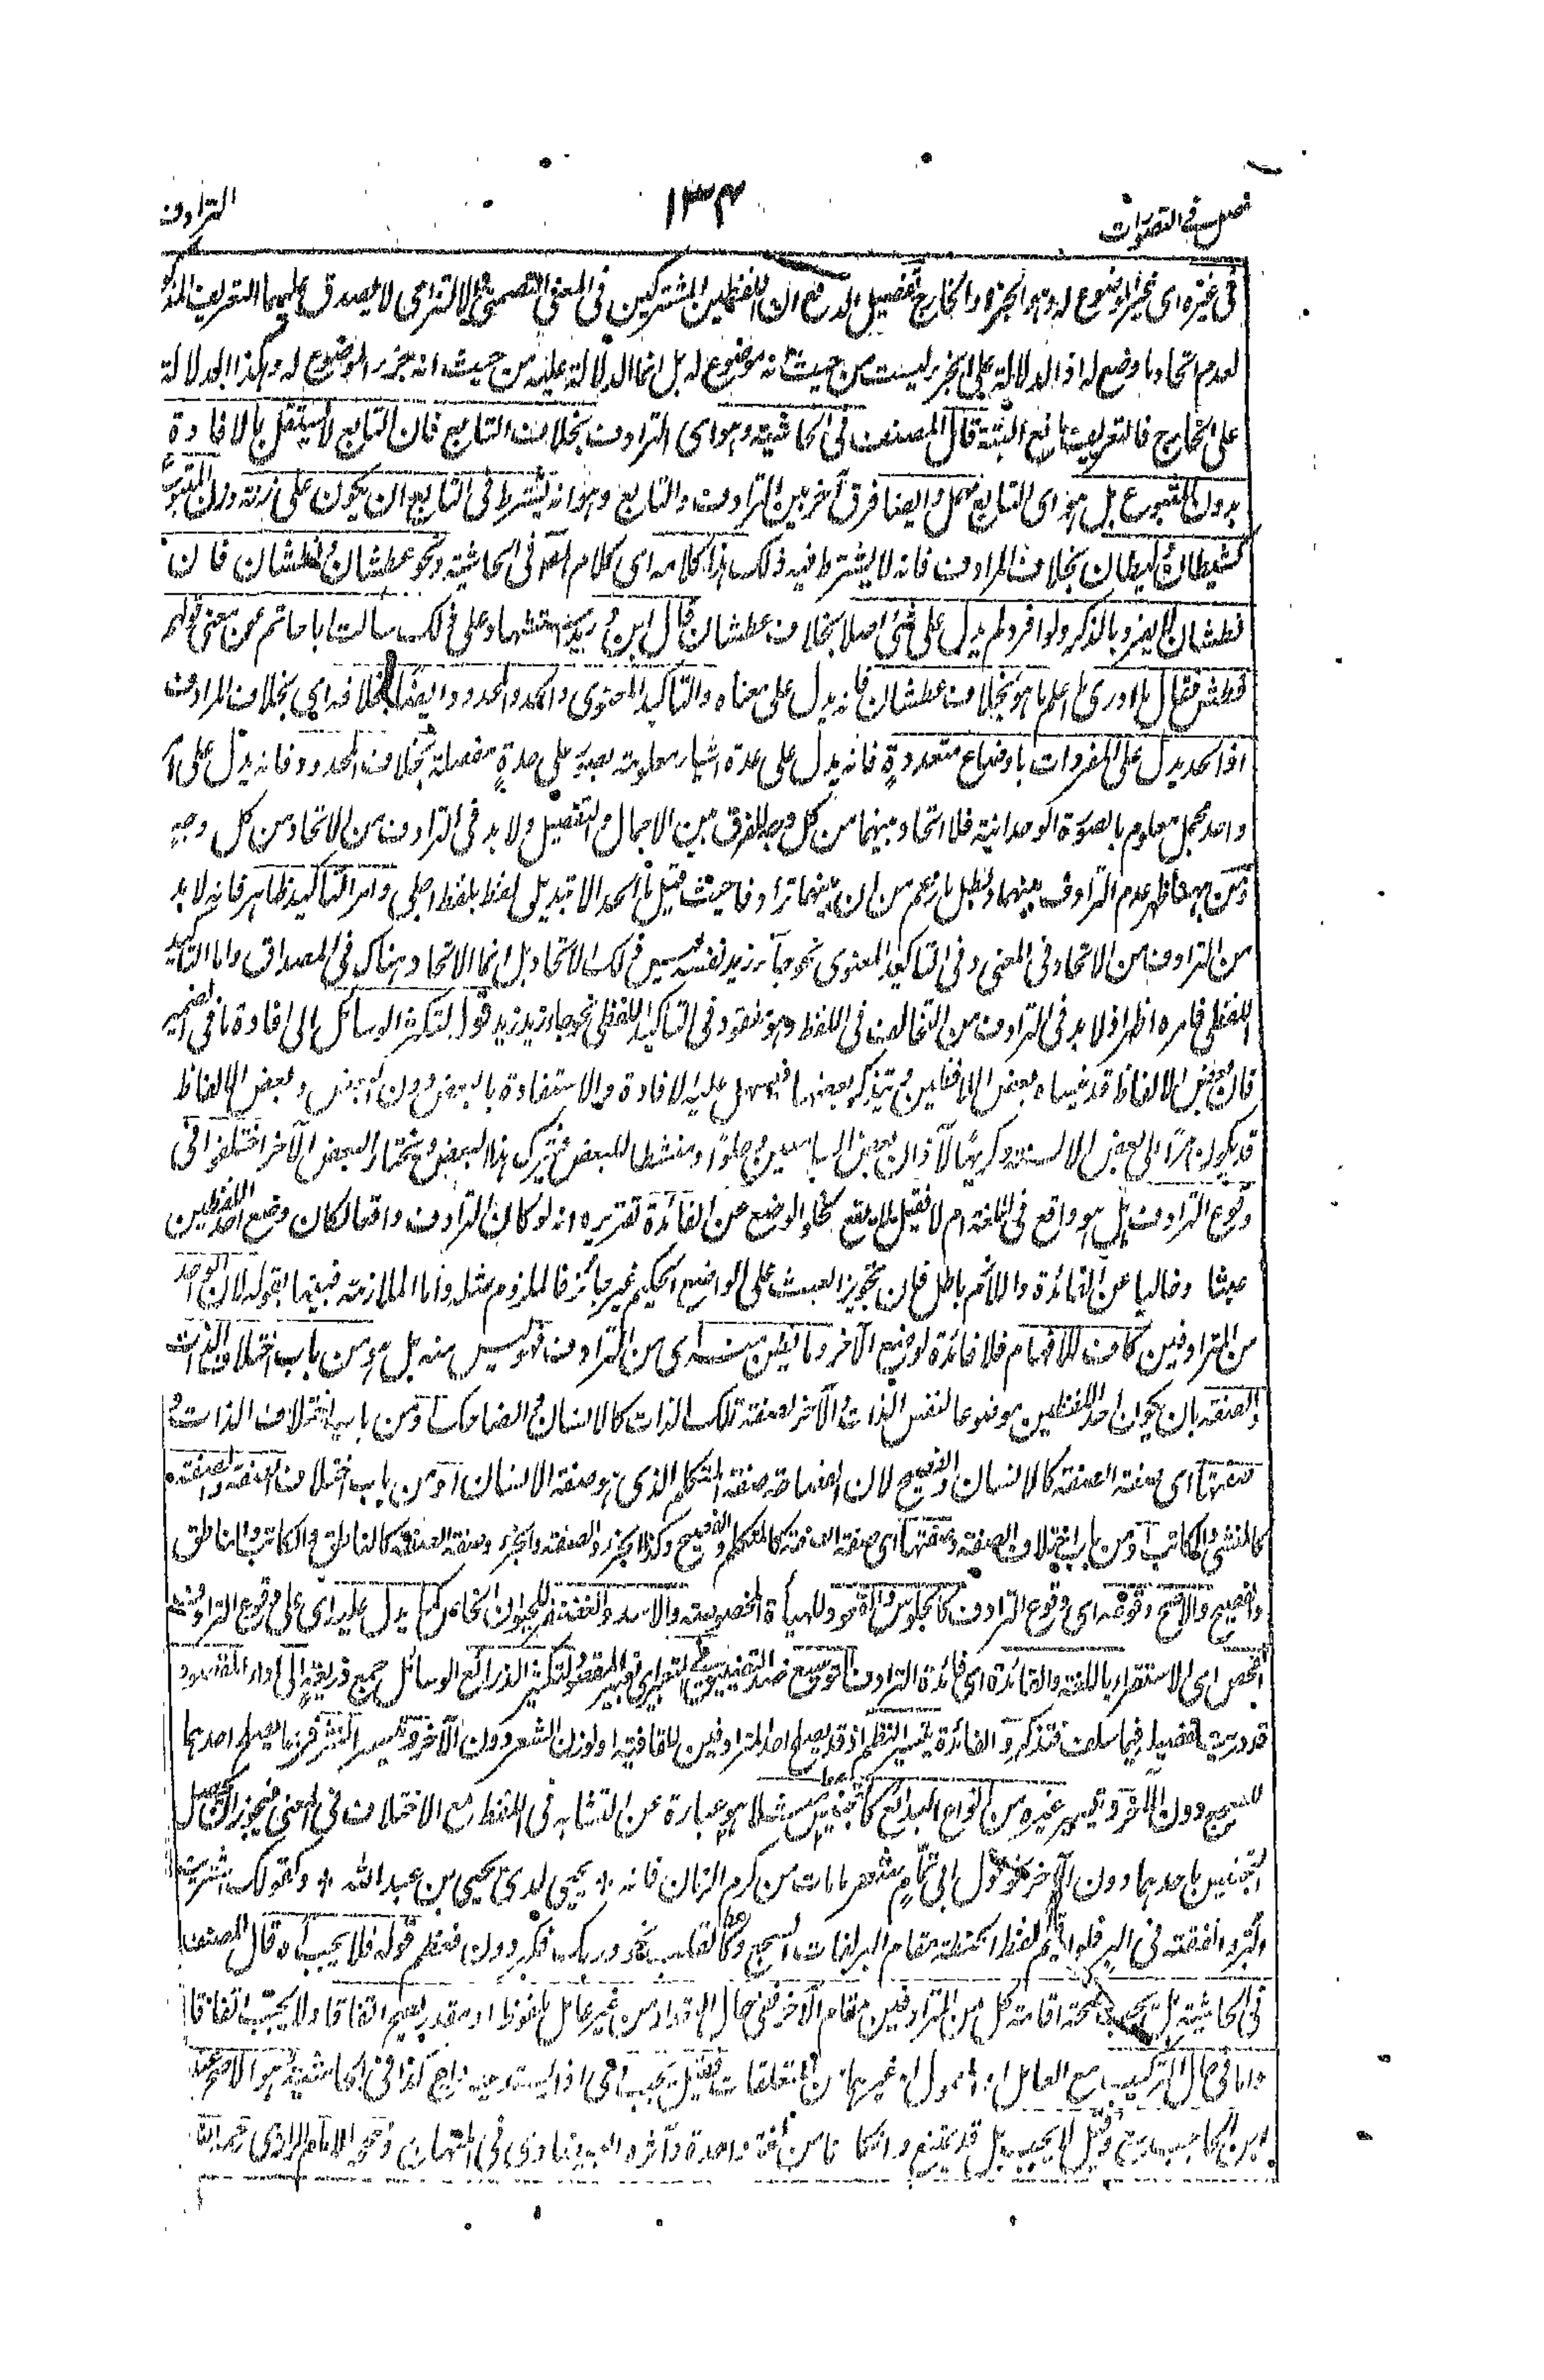 فصل فی التصورات
۱۳۴
الترادف
فی غیره ای غیر الموضوع له وهو الجزء والخارج تفصیل الدفع ان اللفظین المشترکین فی المعنی التضمنی او الالتزامی لا یصدق علیهما التعریف
لعدم اتحاد ما وضع له اذ الدلالة علی الجزء لیست من حیث انه موضوع له بل انما الدلالة علیه من حیث انه جزء الموضوع له وهکذا الدلالة
علی الخارج فالتعریف مانع البتة قال المصنف فی الحاشیة وهو ای الترادف بخلاف التابع فان التابع لا یستقل بالافادة
بدون المتبوع بل هو ای التابع مهمل وایضا فرق آخر بین الترادف والتابع وهو انه یشترط فی التابع ان یکون علی زنة وزن المتبوع
کشیطان لیطان بخلاف المرادف فانه لا یشترط فیه ذلک هذا کلامه ای کلام المصنف فی الحاشیة ونحو عطشان نطشان فان
نطشان لا یفرد بالذکر ولو افرد لم یدل علی شئ اصلا بخلاف عطشان قال ابن درید سألت ابا حاتم عن معنی قولهم
نطش فقال لا ادری ای لا اعلم ما هو بخلاف عطشان فانه یدل علی معناه والتاکید المعنوی والحد والمحدود وایضا بخلافه ای بخلاف المرادف
اذ الحد یدل علی المفردات باوضاع متعددة فانه یدل علی عدة اشیاء معلومة بصورة علی حدة مفصلة بخلاف المحدود فانه یدل علی امر
واحد مجمل معلوم بالصورة الوحدانیة فلا اتحاد بینهما من کل وجه للفرق بین الاجمال والتفصیل ولا بد فی الترادف من الاتحاد من کل وجه
ومن ههنا ظهر عدم الترادف بینهما وبطل ما زعم من ان بینهما ترادفا حیث قیل ما الحد الا تبدیل لفظ بلفظ اجلی وامر التاکید ظاهر فانه لا بد
من الترادف من الاتحاد فی المعنی وفی التاکید المعنوی نحو جاء زید نفسه لیس ذلک الاتحاد بل انما الاتحاد هناک فی المصداق واما التاکید
اللفظی فامره اظهر اذ لا بد فی الترادف من التخالف فی اللفظ وهو مفقود فی التاکید اللفظی نحو جاء زید زید قوله لتکثر الوسائل الی افادة ما فی الضمیر
فان بعض الالفاظ قد ینساه بعض اللافظین ویتذکر بعضها فیسهل علیه الافادة والاستفادة بالبعض دون البعض وبعض الالفاظ
قد یکون مرّا علی بعض الالسنة وکریها لآذان بعض السامعین وحلوا ومنشطا للبعض فیترک هذا البعض ویختار البعض الآخر اختلفوا فی
وقوع الترادف هل هو واقع فی اللغة ام لا فقیل بلا یقع لخلو الوضع عن الفائدة تقریره انه لو کان الترادف واقعا لکان وضع احد اللفظین
عبثا وخالیا عن الفائدة واللازم باطل فان تجویز العبث علی الواضع الحکیم غیر جائز فالملزوم مثله واما الملازمة فبینها بقوله لان الواحد
من المترادفین کاف للافهام فلا فائدة لوضع الآخر وما یظن منه ای من الترادف فهو لیس منه بل هو من باب اختلاف الذات
والصفة بان یکون احد اللفظین موضوعا لنفس الذات والآخر لصفة تلک الذات کالانسان والضاحک او من باب اختلاف الذات و
صفتها ای صفة الصفة کالانسان والفصیح لان الفصاحة صفة المتکلم الذی هو صفة الانسان او من باب اختلاف الصفة والصفة
کالمنشی والکاتب او من باب اختلاف الصفة وصفتها ای صفة الصفة کالمتکلم والفصیح وکذا الجزء والصفة والجزء وصفة الصفة کالناطق والکاتب والناطق
والفصیح والاصح وقوعه ای وقوع الترادف کالجلوس والقعود للهیأة المخصوصة والاسد والغضنفر للحیوان الخاص کما یدل علیه ای علی وقوع الترادف
الفحص ای الاستقراء باللغة والفائدة ای فائدة الترادف التوسیع ضد التضییق فی التعبیر ای تعبیر المقصود لتکثیر الذرائع الوسائل جمع ذریعة الی اداء المقصود
قد دریت تفصیله فیما سلف فتذکر والفائدة تیسیر النظم اذ قد یصلح احد المترادفین للقافیة او لوزن الشعر دون الآخر وتیسیر النثر فربما یصلح احدهما
للسجع دون الآخر وتیسیر غیره من انواع البدائع کالتجنیس مثلا هو عبارة عن التشابه فی اللفظ مع الاختلاف فی المعنی فیجوز ان یحصل
التجنیس باحدهما دون الآخر نحو قول ابی تمام شعر ما مات من کرم الزمان فانه ٭ یحیی لدی یحیی بن عبد الله ٭ وکقولک اشتریت
البر وانفقته فی البر فلو اقیم لفظ الحنطة مقام البر لفات السجع وکالقلب نحو وربک فکبر دون فعظم قوله فلا یجب اه قال المصنف
فی الحاشیة بل یجب صحة اقامة کل من المترادفین مقام الآخر ففی حال الافراد من غیر عامل ملفوظ او مقدر یصح اتفاقا ولا یجب اتفاقا
واما فی حال الترکیب مع العامل او المعمول او غیرهما من المتعلقات فقیل یجب کذا فی الحاشیة وهو الاصح عند
ابن الحاجب وقیل لا یجب بل قد یمتنع وان کانا من لغة واحدة واختاره البیضاوی فی المنهاج وقیل الامام الرازی رحمه الله